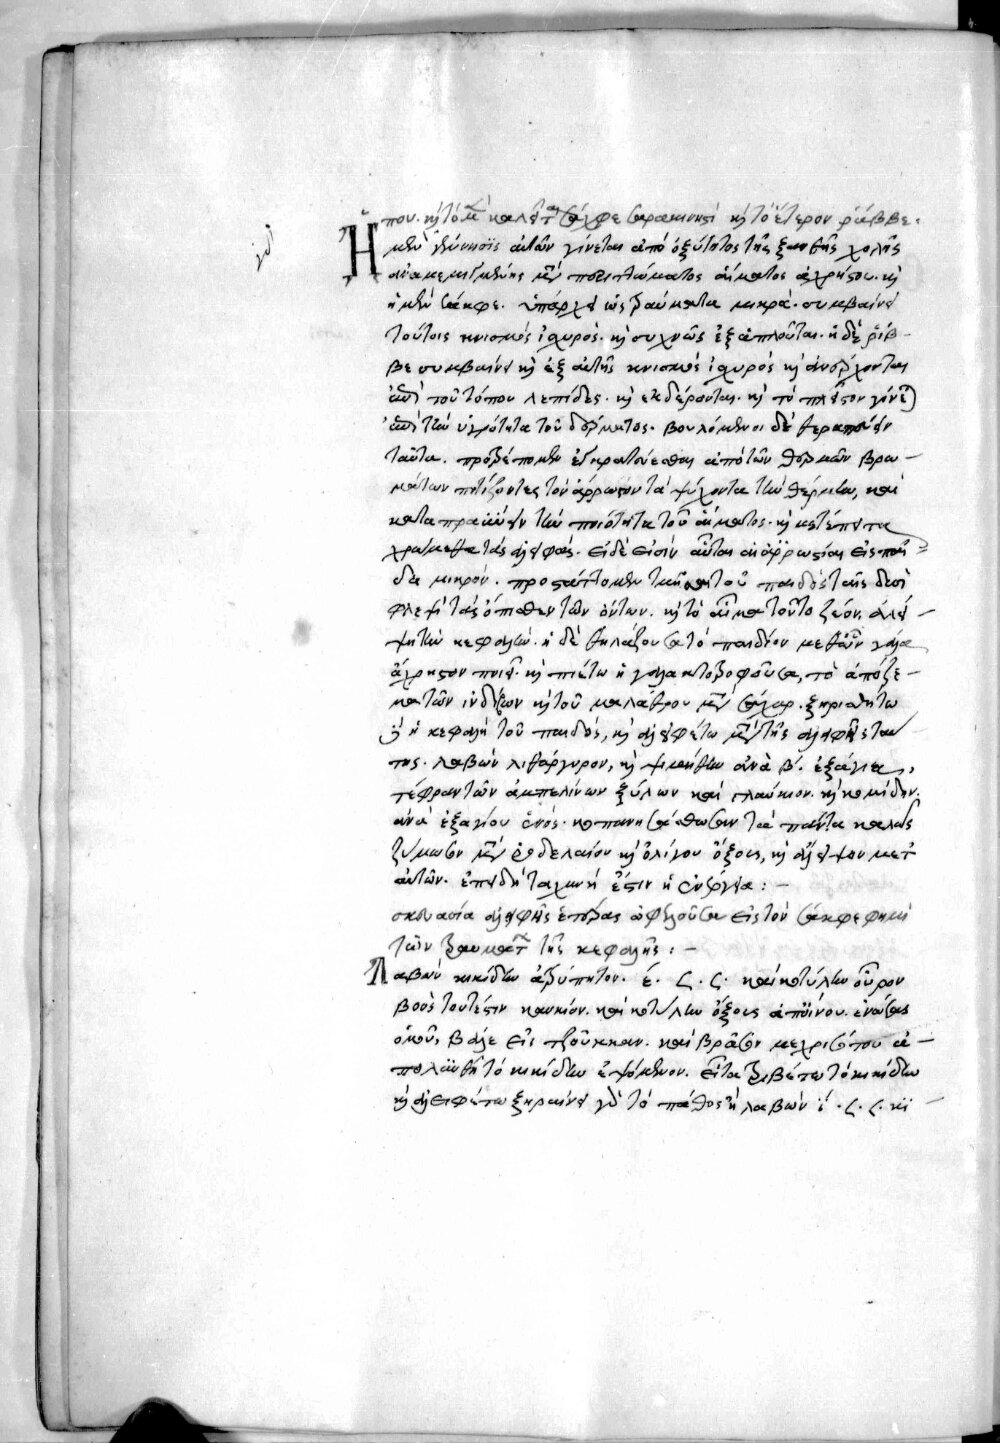 που. καὶ τὸ μὲν καλεῖται σάχφε σαρακηνιστὶ καὶ τὸ ἕτερον ῥάββε:
Ἡ μὲν γέννησις αὐτῶν γίνεται ἀπὸ ὀξύτητος τῆς ξανθῆς χολῆς
ἀναμεμιγμένης μετὰ περιττώματος αἵματος ἀχρήστου. καὶ
ἡ μὲν σάκφε. ὑπάρχει ὡς τραύματα μικρά. συμβαίνει
τούτοις κνισμός ἰσχυρός. καὶ συχνῶς ἐξαπλοῦται. ἡ δὲ ῥίβ-
βε συμβαίνει καὶ ἐξ αὐτῆς κνισμός ἰσχυρός καὶ ἀνέρχονται
ἀπὸ τοῦ τόπου λεπίδες. καὶ ἐκδέρονται. καὶ τὸ πλεῖστον γίνεται
ἀπὸ τὴν ὑγρότητα τοῦ δέρματος. βουλόμενοι δὲ θεραπεύειν
ταῦτα. προτρέπομεν ἐγκρατεύεσθαι ἀπὸ τῶν θερμῶν βρω-
μάτων ποτίζοντες τὸν ἄρρωστον τὰ ψύχοντα τὴν θέρμην, καὶ
καταπραΰνειν τὴν ποιότητα τοῦ αἵματος. καὶ μετέπειτα
χρώμεθα τὰς ἀλειφάς. εἰ δὲ εἰσὶν αὗται αἱ ἀρρωστίαι εἰς παι-
δα μικρόν. προστάττομεν τμηθῆναι τοῦ παιδὸς τὰς δύο
φλέβας τὰς ὄπισθεν τῶν ὤτων. καὶ τὸ αἷμα τοῦτο ζέον, ἀλεί-
ψει τὴν κεφαλήν. ἡ δὲ θηλάζουσα τὸ παιδίον μεθ' ὧν γάλα
ἄχρηστον ποιεῖ. καὶ πιέτω ἡ γαλακτοτροφοῦσα, τὸ ἀπόζε-
μα τῶν ἰνδίβων καὶ τοῦ μαλάθρου μετὰ σάχαρ. ξηρισθήτω
ἡ κεφαλὴ τοῦ παιδός, καὶ ἀλειφέτω μετὰ τῆς ἀλειφῆς ταύ
της. λαβὼν λιθάργυρον, καὶ ψιμύθιν ἀνὰ β´. ἐξάγια,
τέφραν τῶν ἀμπελίνων ξύλων καὶ γλαύκιον. καὶ κομίδην.
ἀνὰ ἐξαγίου ἑνός. κοπανησάσθωσαν τὰ πάντα καλῶς
ζύμωσον μετὰ ῥοδελαίου καὶ ὀλίγου ὄξους, καὶ ἄλειψον μετ'
αὐτῶν. ἐπειδὴ ταχινή ἐστιν ἡ ἐνέργεια: -
σκευασία ἀλειφῆς ἑτέρας ὠφελοῦσα εἰς τὸν σάκφε φημὶ
τῶν τραυμάτων τῆς κεφαλῆς: -
Λαβὼν κικίδιν ἀτρύπητον. ἑ. ς. ς. καὶ κοτύλην οὖρον
βοὸς τουτέστιν καυκίον. καὶ κοτύλην ὄξους ἀπὸ οἴνου. ἑνώσας
ὁμοῦ, βάλε εἰς τζοῦκκαν. καὶ βράσον μέχρις ὅπου ἁ-
παλυνθῇ τὸ κικίδιν ἑψόμενον. εἶτα τριβέτω τὸ κικίδιν
καὶ ἀλειφέτω ξηραίνει γὰρ τὸ πάθος ἢ λαβὼν ί. ς. ς. κι-